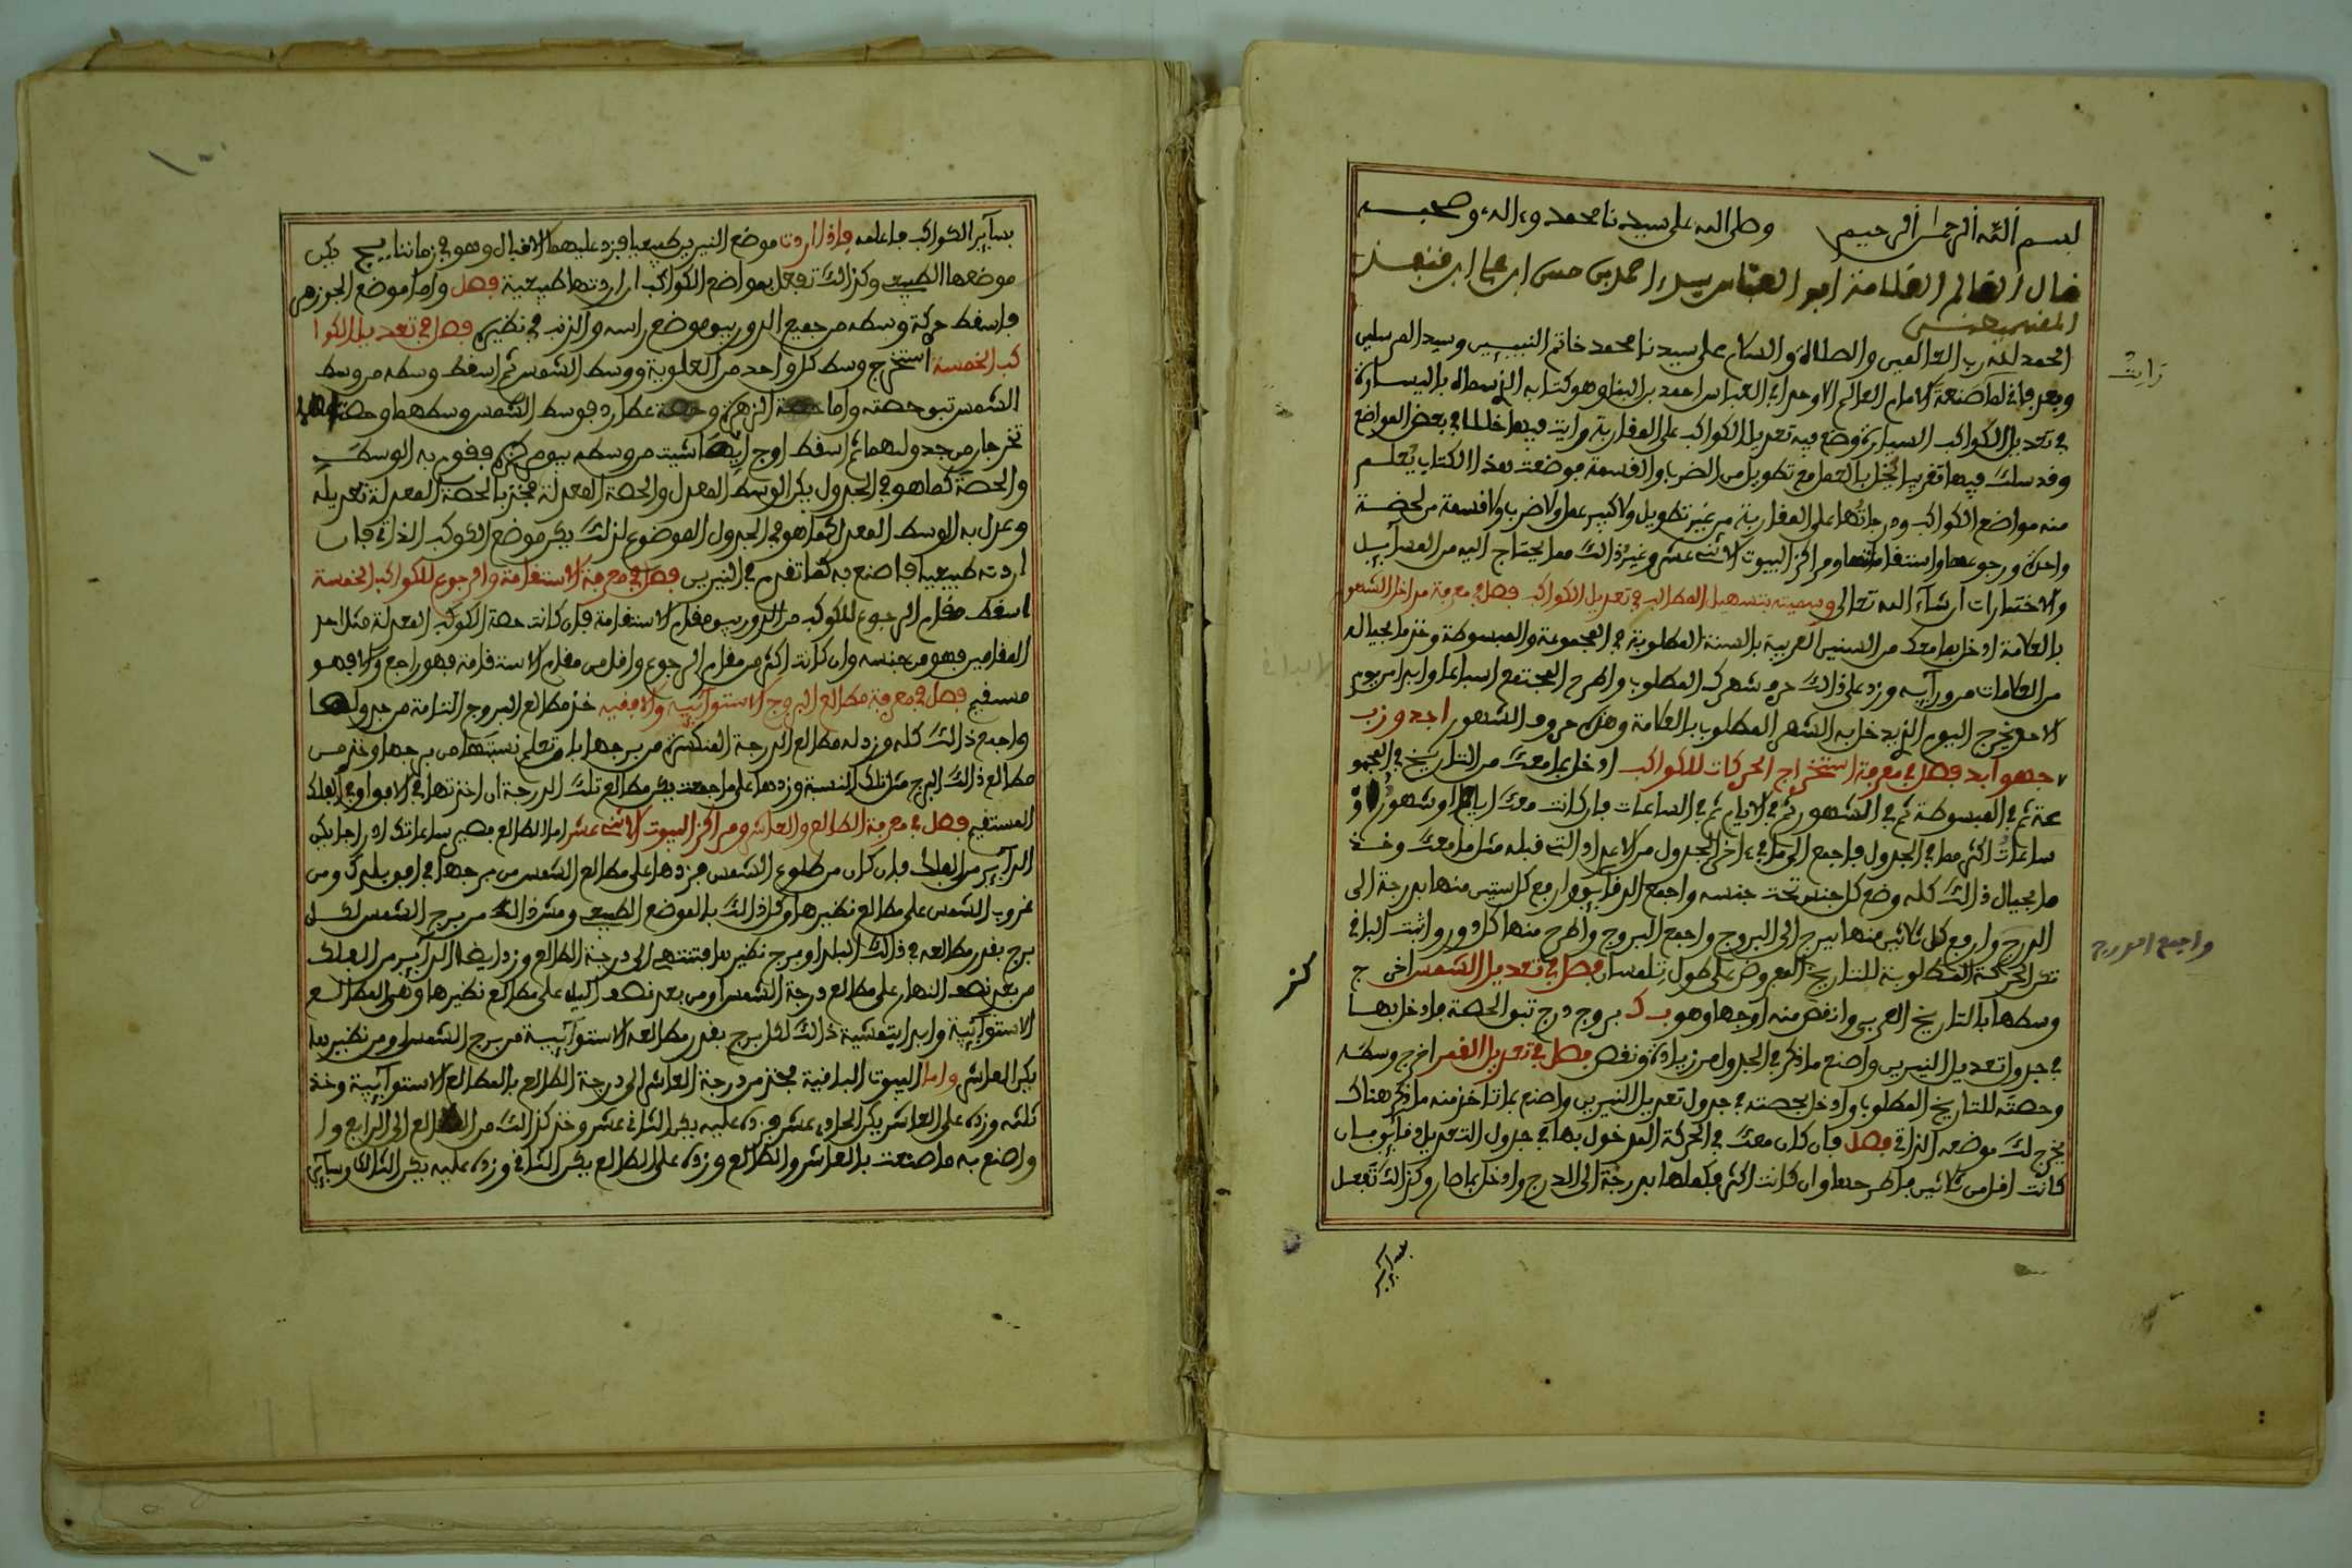 بسم الله الرحمن الرحيم وصلى الله على سيدنا محمد وءاله وصحبه
قال العالم العلامة ابو العباس سيد احمد بن حسن ابن علي ابن قنفد
الحمد لله رب العالمين والصلاة والسلام على سيدنا محمد خاتم النبيين وسيد المرسلين
وبعد فاني لما صنعة الامام العالم الاوحد ابي العباس احمد بن البنا وهو كتابه الذي سماه باليسارة
في تعديل الكواكب السيارة وضع فيه تعديل الكواكب على المقاربة ورايت فيها خللا في بعض المواضع
وقد سلك فيها تقريبا يخل بالعمل مع تطويل من الضرب والقسمة فوضعت هذا الكتاب يُعلم
منه مواضع الكواكب ودرجاتُها على المقاربة من غير تطويل ولا كبير عمل ولا ضرب ولا قسمة من لحضة
واحدة ورجوعها واستقامتها ومراكز البيوت الاثني عشر وغير ذالك مما يحتاج اليه من المسآيل
والاختيارات ان شاء الله تعالى وسميته بتسهيل المطالب في تعديل الكواكب فصل في معرفة مداخل الشهور
بالعلامة ادخل بما معك من السنين العربية بالسنة المطلوبة في المجموعة والمبسوطة وخذ ما بحياله
من العلامات من ورآيه وزد على ذالك حرف شهرك المطلوب واطرح المجتمع اسباعا وابدا من يوم
الاحد يخرج اليوم الذي يدخل به الشهر المطلوب بالعلامة وهذه حروف الشهور ا ج د و ز ب
ج ه و ا ب د فصل في معرفة استخراج الحركات للكواكب ادخل بما معك من التاريخ في المجمو
عة ثم في المبسوطة ثم في الشهور ثم في الايام ثم في الساعات فان كانت معك ايام او شهور او
ساعات اكثر مما في الجدول فاجمع الى ما في ءاخر الجدول من الاعداد التي قبله مثل ما معك وخذ
ما بحيال ذالك كله وضع كل جنس تحت جنسه واجمع الدقايق وارفع كل ستين منها بدرجة الى
الدرج وارفع كل ثلاثين منها ببرج الى البروج واجمع البروج واطرح منها كل دور واثبت الباقي
تكن الحركة المطلوبة للتاريخ المعروض على طول تلمسان فصل في تعديل الشمس اخرج
وسطها بالتاريخ العربي وانقص منه اوجها وهو ب ك بروج ودرج تبق الحصة فادخل بها
في جدول تعديل النيرين واصنع ما ذكر في الجدول من زيادة ونقص فصل في تعديل القمر اخرج وسطه
وحصته للتاريخ المطلوب وادخل بحصته في جدول تعديل النيرين واصنع بما تاخذ منه ما ذكر هناك
يخرج لك موضعه الذاتي فصل فان كان معك في الحركة المدخول بها في جدول التعديل دقايق فان
كانت اقل من ثلاثين فاطرحها وان كانت اكثر فكملها بدرجة الى الدرج وادخل بما صار وكذالك تفعل
واجمع الدرج
بسآير الكواكب فاعلمه فاذا اردت موضع النيرين طبيعيا فزد عليهما الاقبال وهو في زماننا يكن
موضعها الطبيعي وكذالك تفعل بمواضع الكواكب ان اردتها طبيعية فصل واما موضع الجوزهر
فاسقط حركة وسطه من جميع الدور يبق موضع راسه والذنب في نظيره فصل في تعديل الكوا
كب الخمسة استخرج وسط كل واحد من العلوية ووسط الشمس ثم اسقط وسطه من وسط
الشمس تبق حصته واما حصة الزهرة وحصة عطارد فوسط الشمس وسطهما وحصتاهما
تخرجان من جدولهما ثم اسقط اوج ايها شيت من وسطه فقوم به الوسط
والحصة كما هو في الجدول يكن الوسط المعدل والحصة المعدلة فخذ بالحصة المعدلة تعديله
وعدل به الوسط المعدل كما هو في الجدول الموضوع لذلك يكن موضع الكوكب الذاتي فان
اردته طبيعيا فاصنع به كما تقدم في النيرين فصل في معرفة الاستقامة والرجوع للكواكب الخمسة
اسقط مقام الرجوع للكوكب من الدور يبق مقام الاستقامة فان كانت حصة الكوكب المعدلة مثل احد
المقامين فهو من جنسه وان كانت اكثر من مقام الرجوع واقل من مقام الاستقامة فهو راجع والا فهو
مستقيم فصل في معرفة مطالع البروج الاستوآئية والافقية خذ مطالع البروج التامة من جدولها
واجمع ذالك كله وزد له مطالع الدرجة المنكسرة من برجها بان تعلم نسبتها من برجها وخذ من
مطالع ذالك البرج مثل تلك النسبة وزدها على ما جمعت يكن مطالع تلك الدرجة ان اخذتها في الافق او في الفلك
المستقيم فصل في معرفة الطالع والعاشر ومراكز البيوت الاثني عشر اما الطالع فصير ساعاتك ادراجا يكن
الدآير من الفلك فان كان من طلوع الشمس فزدها على مطالع الشمس من برجها في افق بلدك ومن
غروب الشمس على مطالع نظيرها وكل ذالك بالموضع الطبيعي ومش ذالك من برج الشمس لكل
برج بقدر مطالعه في ذالك البلد او برج نظيرها فتنتهي الى درجة الطالع وزد ايضا الدآير من الفلك
من بعد نصف النهار على مطالع درجة الشمس او من بعد نصف اليل على مطالع نظيرها وهي المطالع
الاستوآئية وابدا بتمشية ذالك لكل برج بقدر مطالعه الاستوآئية من برج الشمس او من نظيرها
يكن العاشر واما البيوت الباقية فخذ من درجة العاشر الى درجة الطالع بالمطالع الاستوآئية وخذ
ثلثه وزده على العاشر يكن الحادي عشر وزده عليه يكن الثاني عشر وخذ كذالك من الطالع الى الرابع وا
واصنع به ما صنعت بالعاشر والطالع وزده على الطالع يكن الثاني وزده عليه يكن الثالث وسآير